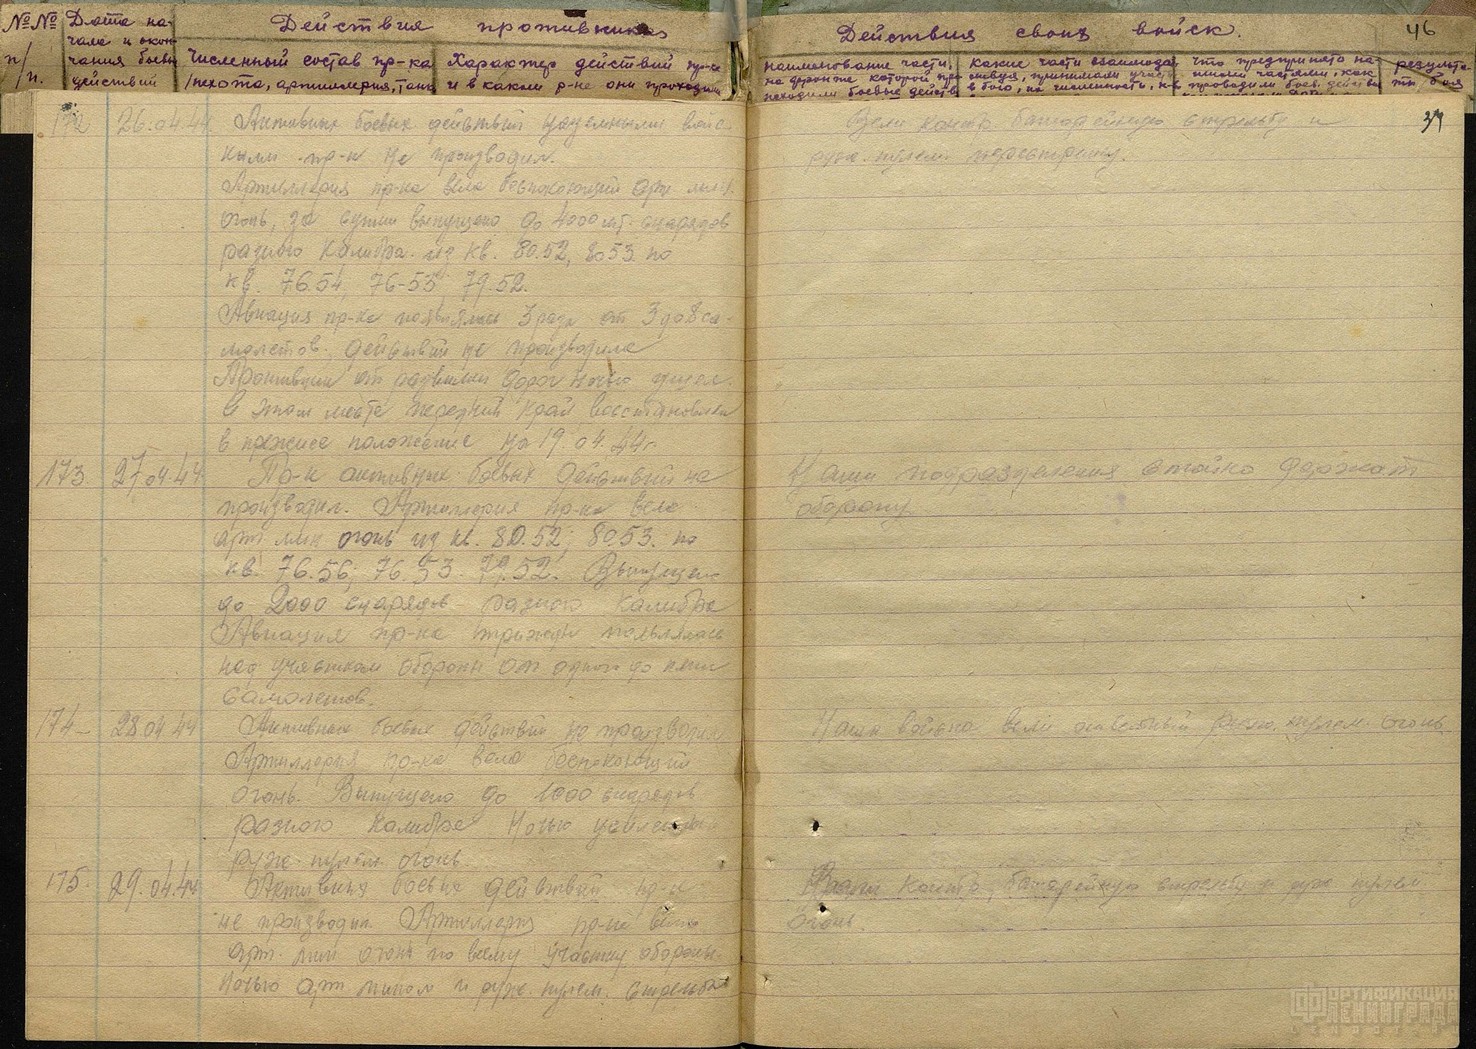 №№ п/п.
Дата на-
чала и окон-
чания боевы
действий
Действия противника
Численный состав пр-ка
/пехота, артиллерия, танк
Характер действий пр-ка
и в каком р-не они проходил
Действия своих войск.
46
наименование части,
на фронте которой про
исходили боевые действ
Какие части взаимодей
ствуя, принимали участ
в бою, их численность, к-в
Что предпринято на-
шими частями, как
проводили боев. действи
результа-
ты боя
37
172 26.04.44 Активных боевых действий наземными войс-
ками пр-к не производил.
Артиллерия пр-ка вела беспокоющий арт. мин.
огонь, за сутки выпущено до 4000 шт. снарядов
разного калибра из кв. 80.52, 8053 по
кв. 76.54, 76-53 79.52.
Авиация пр-ка появлялась 3 раза от 3 до 8 са-
молетов. Действий не производила
Противник от развилки дорог ночью ушел.
В этом месте передний край восстановлен
в прежнее положение на 19.04.44г.
Вели контр. батарейную стрельбу и
руж. пулем. перестрелку.
173 27.04.44 Пр-к активных боевых действий не
производил. Артиллерия пр-ка вела
арт. мин огонь из кв. 80.52; 8053. по
кв. 76.56; 76.53. 79.52. Выпущено
до 2000 снарядов разного калибра
Авиация пр-ка трижды появлялась
над участком обороны от одного до пяти
самолетов.
Наши подразделения стойко держат
оборону
174 28.04.44 Активных боевых действий не производил
Артиллерия пр-ка вела беспокоющий
огонь. Выпущено до 1000 снарядов
разного калибра Ночью усиленный
руж. пулем. огонь.
Наши войска вели ответный руж. пулем. огонь
175 29.04.44 Активных боевых действий пр-к
не производил Артиллерия пр-ка вела
арт. мин огонь по всему участку обороны.
Ночью арт. мином и руж. пулем. стрельба
Вели контр. батарейную стрельбу и руж пулем
огонь.
ФОРТИФИКАЦИЯ
ЛЕНИНГРАДА